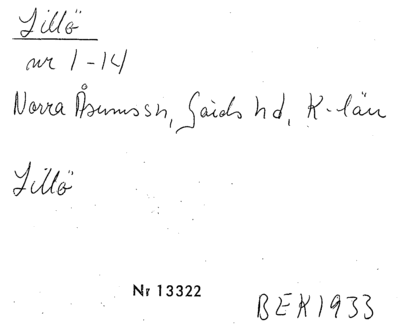 Lillö
nr 1-14
Norra Åsums sn, Gärds hd, K-län
Lillö
Nr 13322
BEK 1933